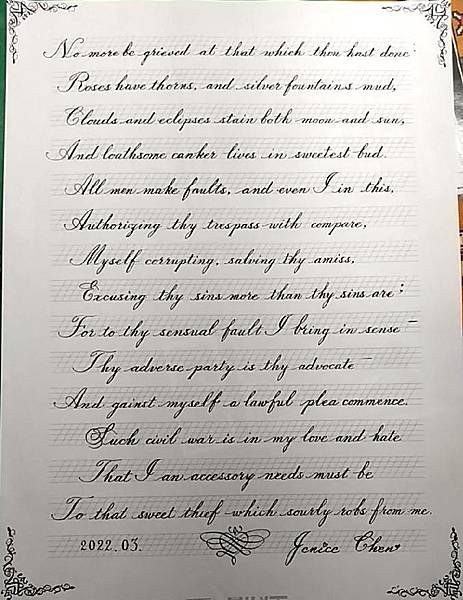 No more be grieved at that which thou hast done:
Roses have thorns, and silver fountains mud,
Clouds and eclipses stain both moon and sun,
And loathsome canker lives in sweetest bud.
All men make faults, and even I in this,
Authorizing thy trespass with compare,
Myself corrupting, salving thy amiss,
Excusing thy sins more than thy sins are;
For to thy sensual fault I bring in sense—
Thy adverse party is thy advocate—
And gainst myself a lawful plea commence.
Such civil war is in my love and hate
That I an accessory needs must be
To that sweet thief which sourly robs from me.
2022.03. Jenice Chen